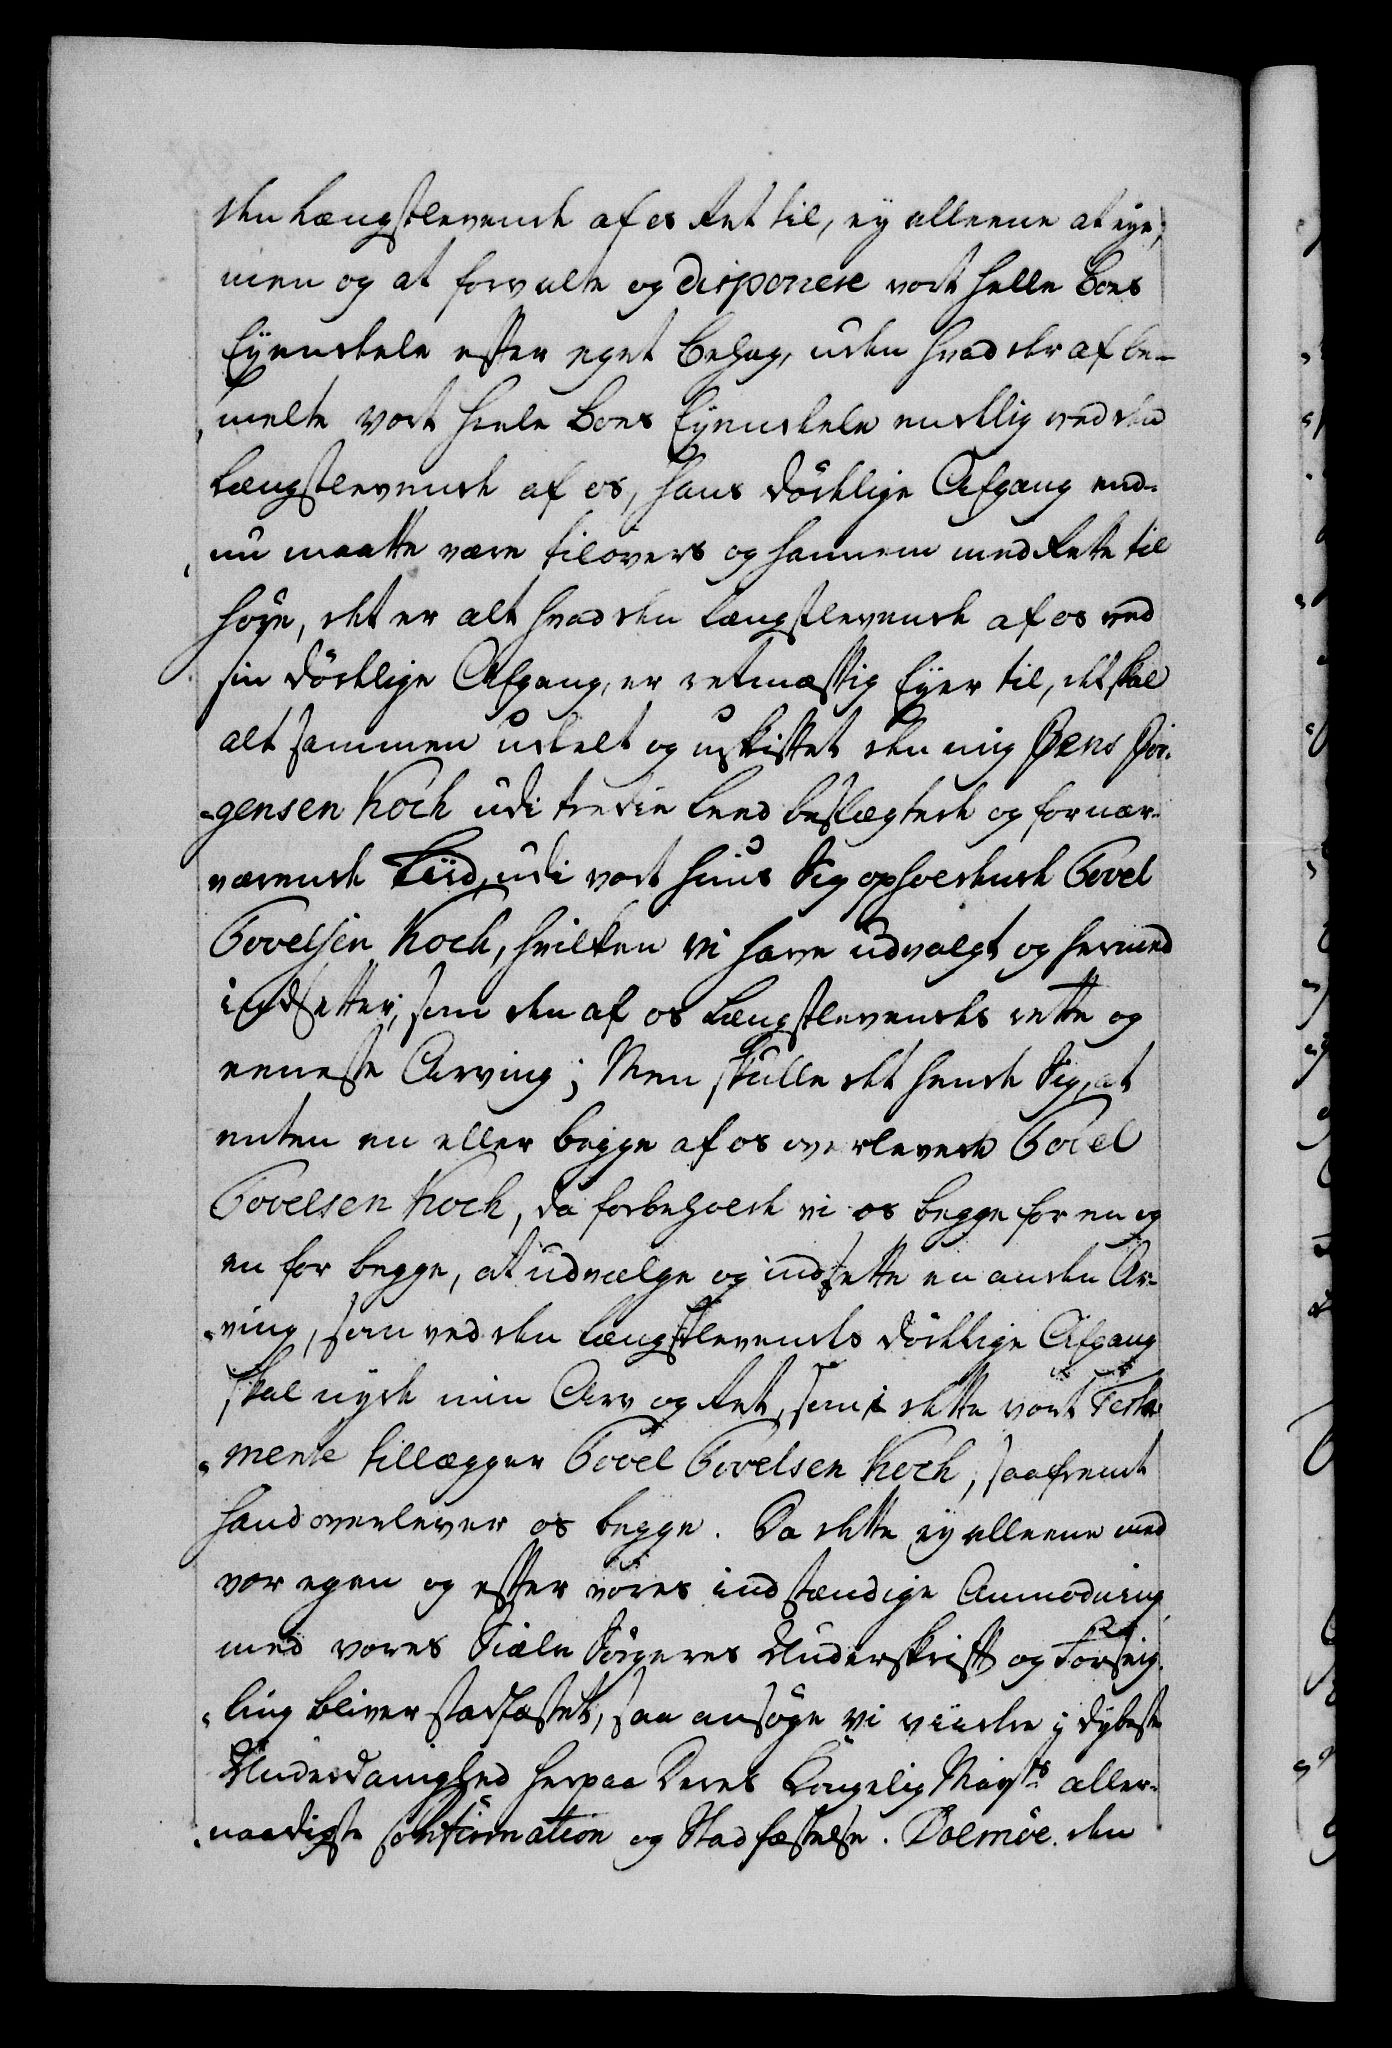 den Længstlevende af os Ret til, ey alleene at eye,
men og at forvalte og disponere vort heele Boes
Eyendele efter eget Behag, uden hvad der af be-
melte vort heele Boes Eyendele endelig ved den
Længstlevende af os, hans dödelige Afgang end-
nu maatte være tilovers og hannem med Rette til
höre, det er alt hvad den længstlevende af os ved
sin dödelige Afgang, er retmæssig Eyer til, det skal
alt sammen udeelt og uskiftet den mig Jens Jör-
gensen Koch udi tredie Leed beslægtede og fornær-
værende Tiid, udi vort Huus Sig opholdende Povel
Povelsen Koch, hvilken vi have udvalgt og hermed
indsetter, som den af os Længstlevendes rette og
eeneste Arving; Men skulle det hende Sig, at
enten en eller begge af os overlevede Povel
Povelsen Koch, da forbeholde vi os begge for en og
en for begge, at udvælge og indsette en anden Ar-
ving, som ved den længstlevendes dödelige Afgang
skal nyde min Arv og Ret, som i dette vort Testa-
mente tillægger Povel Povelsen Koch, saafremt
hand overlever os begge. Da dette ey alleene med
vor egen og efter vores indstændige Anmodning
med vores Siæle Sörgeres Underskrift og Forseig-
ling bliver stadfæstet, saa ansöge vi viidre i dybeste
Underdanighed herpaa Deres Kongelig Mayts aller-
naadigste Confirmation og Stadfæstelse. Doemöe. den